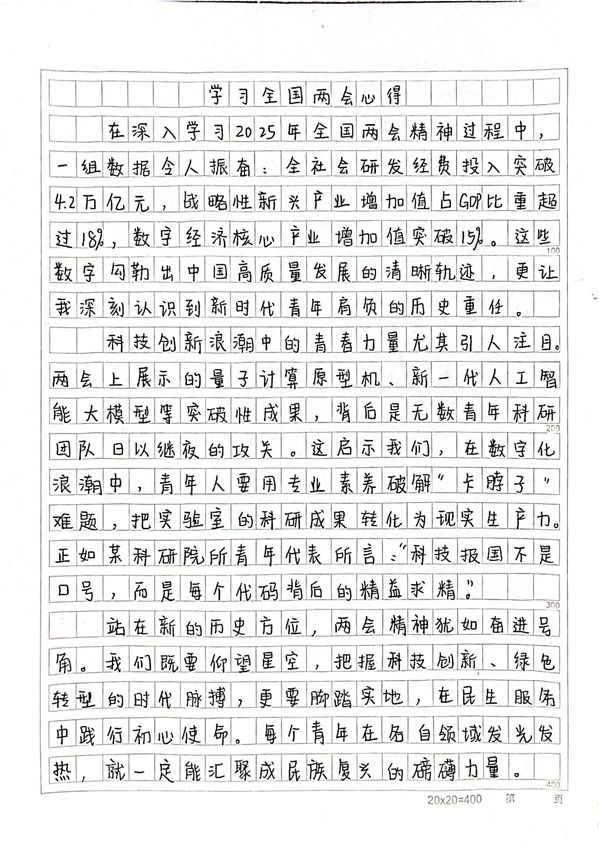 学习全国两会心得
在深入学习2025年全国两会精神过程中，
一组数据令人振奋：全社会研发经费投入突破
4.2万亿元，战略性新兴产业增加值占GDP比重超
过18%，数字经济核心产业增加值突破15%。这些
100
数字勾勒出中国高质量发展的清晰轨迹，更让
我深刻认识到新时代青年肩负的历史重任。
科技创新浪潮中的青春力量尤其引人注目。
两会上展示的量子计算原型机、新一代人工智
能大模型等突破性成果，背后是无数青年科研
200
团队日以继夜的攻关。这启示我们，在数字化
浪潮中，青年人要用专业素养破解“卡脖子”
难题，把实验室的科研成果转化为现实生产力。
正如某科研院所青年代表所言：“科技报国不是
口号，而是每个代码背后的精益求精。”
300
站在新的历史方位，两会精神犹如奋进号
角。我们既要仰望星空，把握科技创新、绿色
转型的时代脉搏，更要脚踏实地，在民生服务
中践行初心使命。每个青年在各自领域发光发
热，就一定能汇聚成民族复兴的磅礴力量。
400
20x20=400 第 页